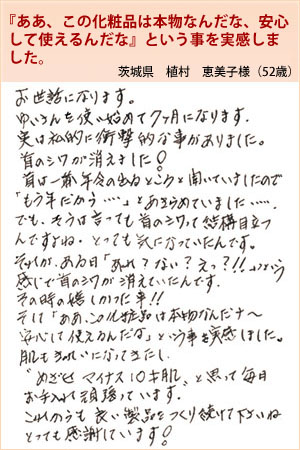 『ああ、この化粧品は本物なんだな、安心
して使えるんだな』という事を実感しま
した。
茨城県　植村　恵美子様（52歳）
お世話になります。
ゆいさんを使い始めて7ヶ月になります。
実は私的に衝撃的な事がありました。
首のシワが消えました！
首は一番年令の出るところと聞いていましたので
「もう年だから……」とあきらめていました……。
でも、そうは言っても首のシワって結構目立つ
んですよね・とっても気になっていたんです。
それが、ある日「あれ？ない？えっ？!!」という
感じで首のシワが消えていたんです。
その時の嬉しかった事!!
そして「ああ、この化粧品は本物なんだナ〜
安心して使えるんだな」という事を実感しました。
肌もきれいになってきたし、
"めざせ マイナス10才肌"と思って毎日
お手入れ頑張っています。
これからも良い製品をつくり続けて下さいね
とっても感謝しています！